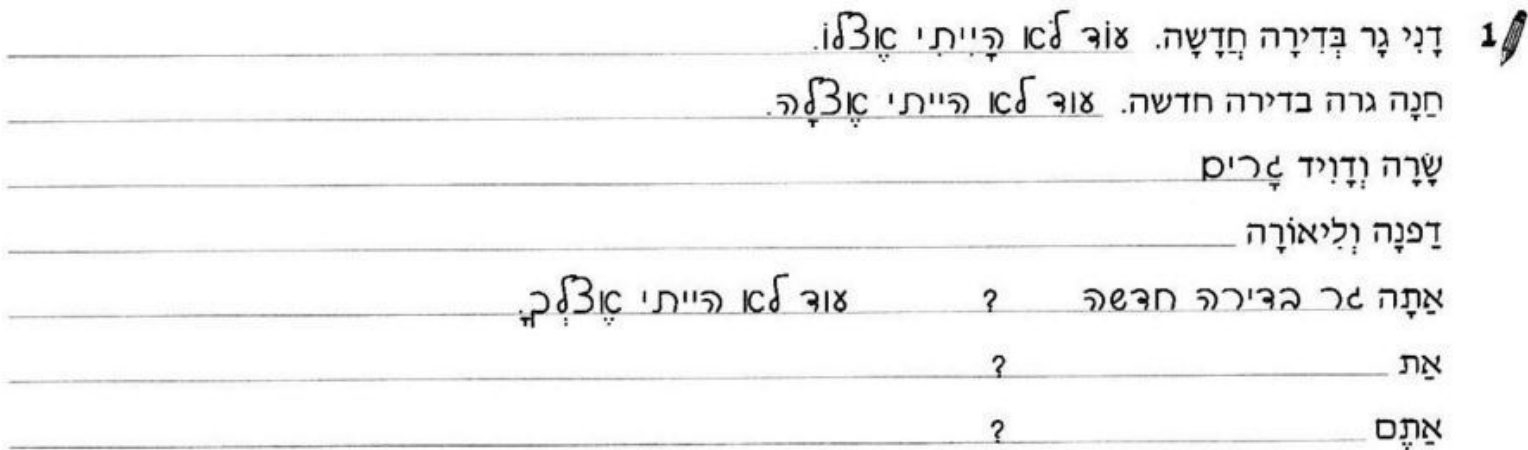 1 דָנִי גָר בְּדִירָה חֲדָשָה. עוֹד לֹא הָיִיתִי אֶצְלוֹ.
חַנָה גרה בדירה חדשה. עוד לא הייתי אֶצְלָהּ.
שָׂרָה וְדָוִיד גָרים
דַפנָה וְלִיאוֹרָה
אַתָה גר בדירה חדשה ? עוד לא הייתי אֶצְלְךָ.
אַת ?
אַתֶם ?